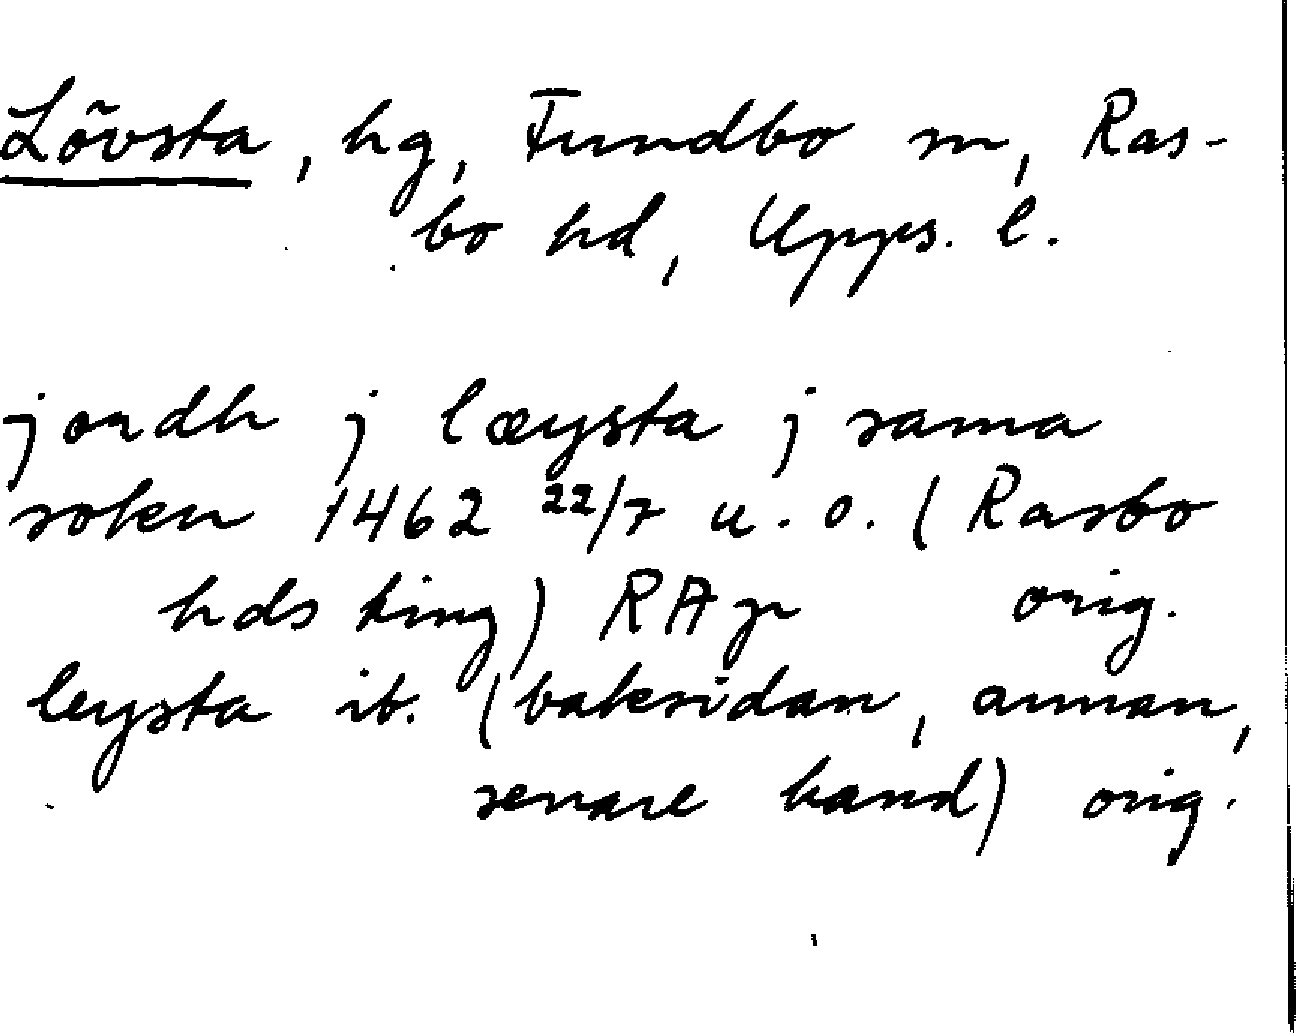 Lövsta, hg, Funbo sn, Ras-
bo hd, Upps. l.
jordh j lœysta j sama
soken 1462 22/7 u. o. (Rasbo
hds ting) RAp orig.
leysta ib. (baksidan, annan,
senare hand) orig.